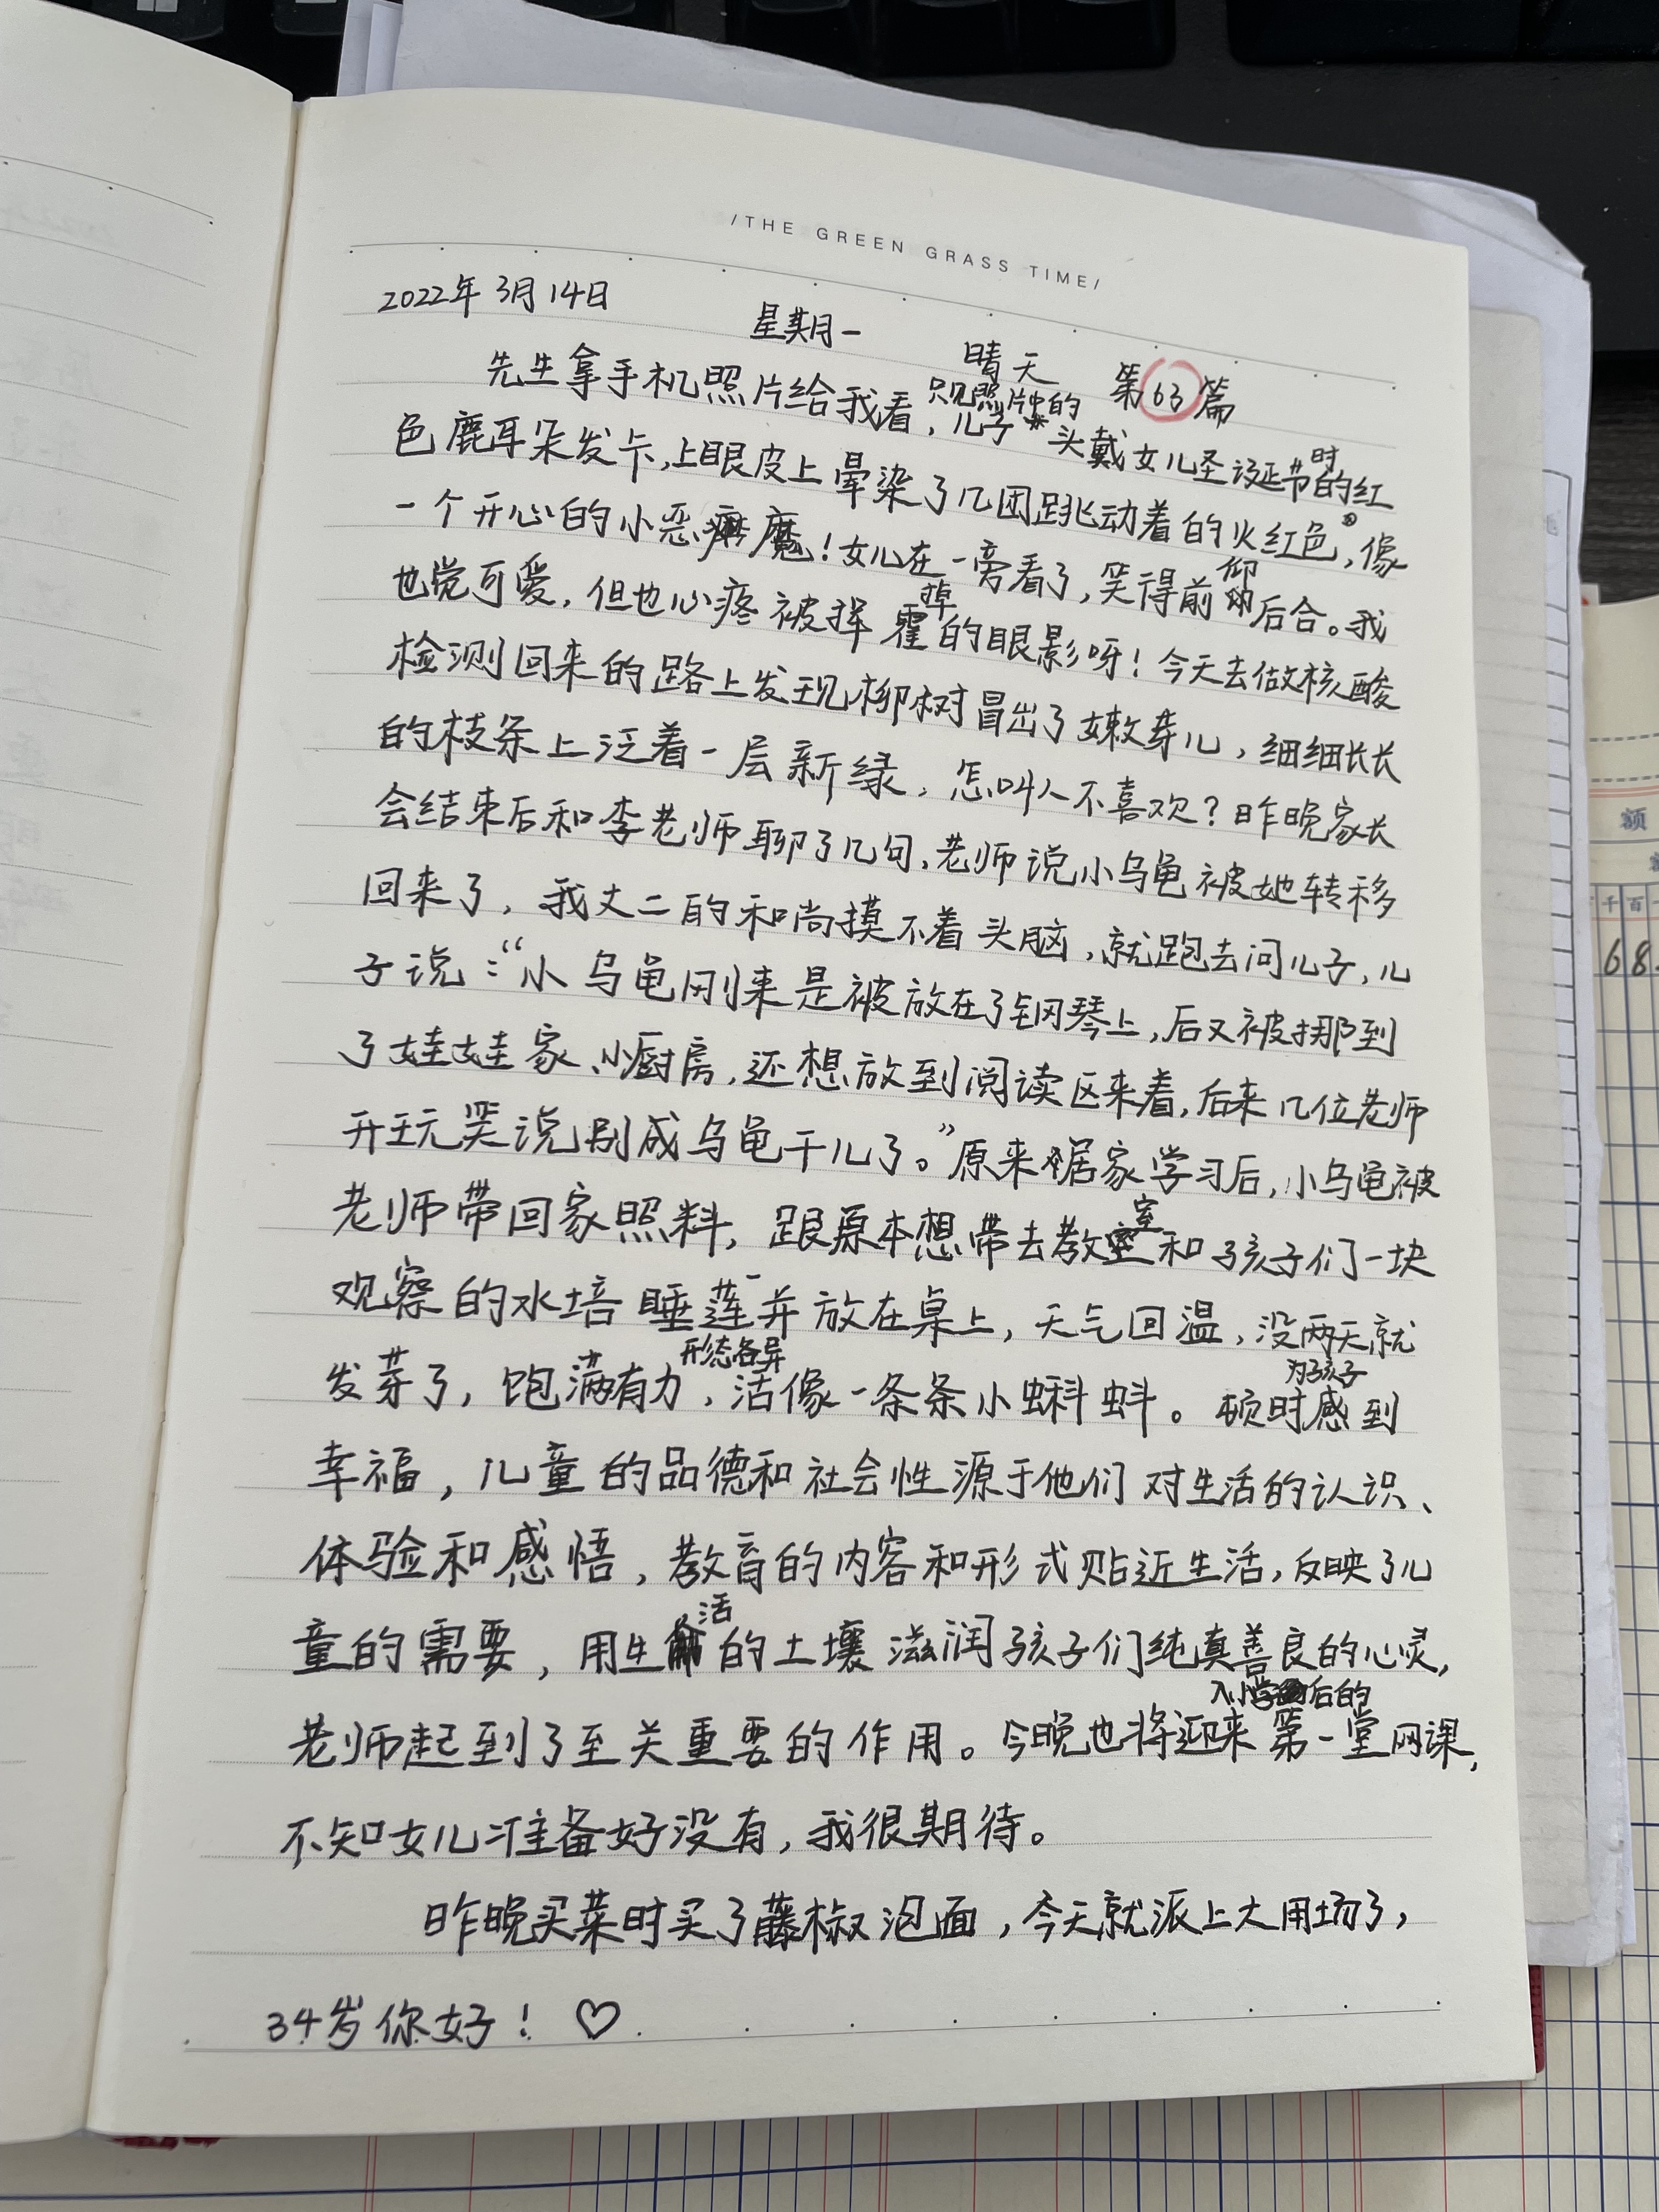 /THE GREEN GRASS TIME/
2022年3月14日 星期一 晴天 第63篇
先生拿手机照片给我看,只见照片中的儿子头戴女儿圣诞节时的红
色鹿耳朵发卡,上眼皮上晕染了几团跳动着的火红色,像
一个开心的小恶魔!女儿在一旁看了,笑得前仰后合。我
也觉可爱,但也心疼被挥霍掉的眼影呀!今天去做核酸
检测回来的路上发现柳树冒出了嫩芽儿,细细长长
的枝条上泛着一层新绿,怎叫人不喜欢?昨晚家长
会结束后和李老师聊了几句,老师说小乌龟被她转移
回来了,我丈二的和尚摸不着头脑,就跑去问儿子,儿
子说:“小乌龟刚来是被放在了钢琴上,后又被挪到
了娃娃家、小厨房,还想放到阅读区来着,后来几位老师
开玩笑说别成乌龟干儿了。”原来居家学习后,小乌龟被
老师带回家照料,跟原本想带去教室和孩子们一块
观察的水培睡莲一并放在桌上,天气回温,没两天就
发芽了,饱满有力,形态各异活像一条条小蝌蚪。顿时为孩子感到
幸福,儿童的品德和社会性源于他们对生活的认识、
体验和感悟,教育的内容和形式贴近生活,反映了儿
童的需要,用生活的土壤滋润孩子们纯真善良的心灵,
老师起到了至关重要的作用。今晚也将迎来入小学后的第一堂网课,
不知女儿准备好没有,我很期待。
昨晚买菜时买了藤椒泡面,今天就派上大用场了,
34岁你好!♡
额
千百
68